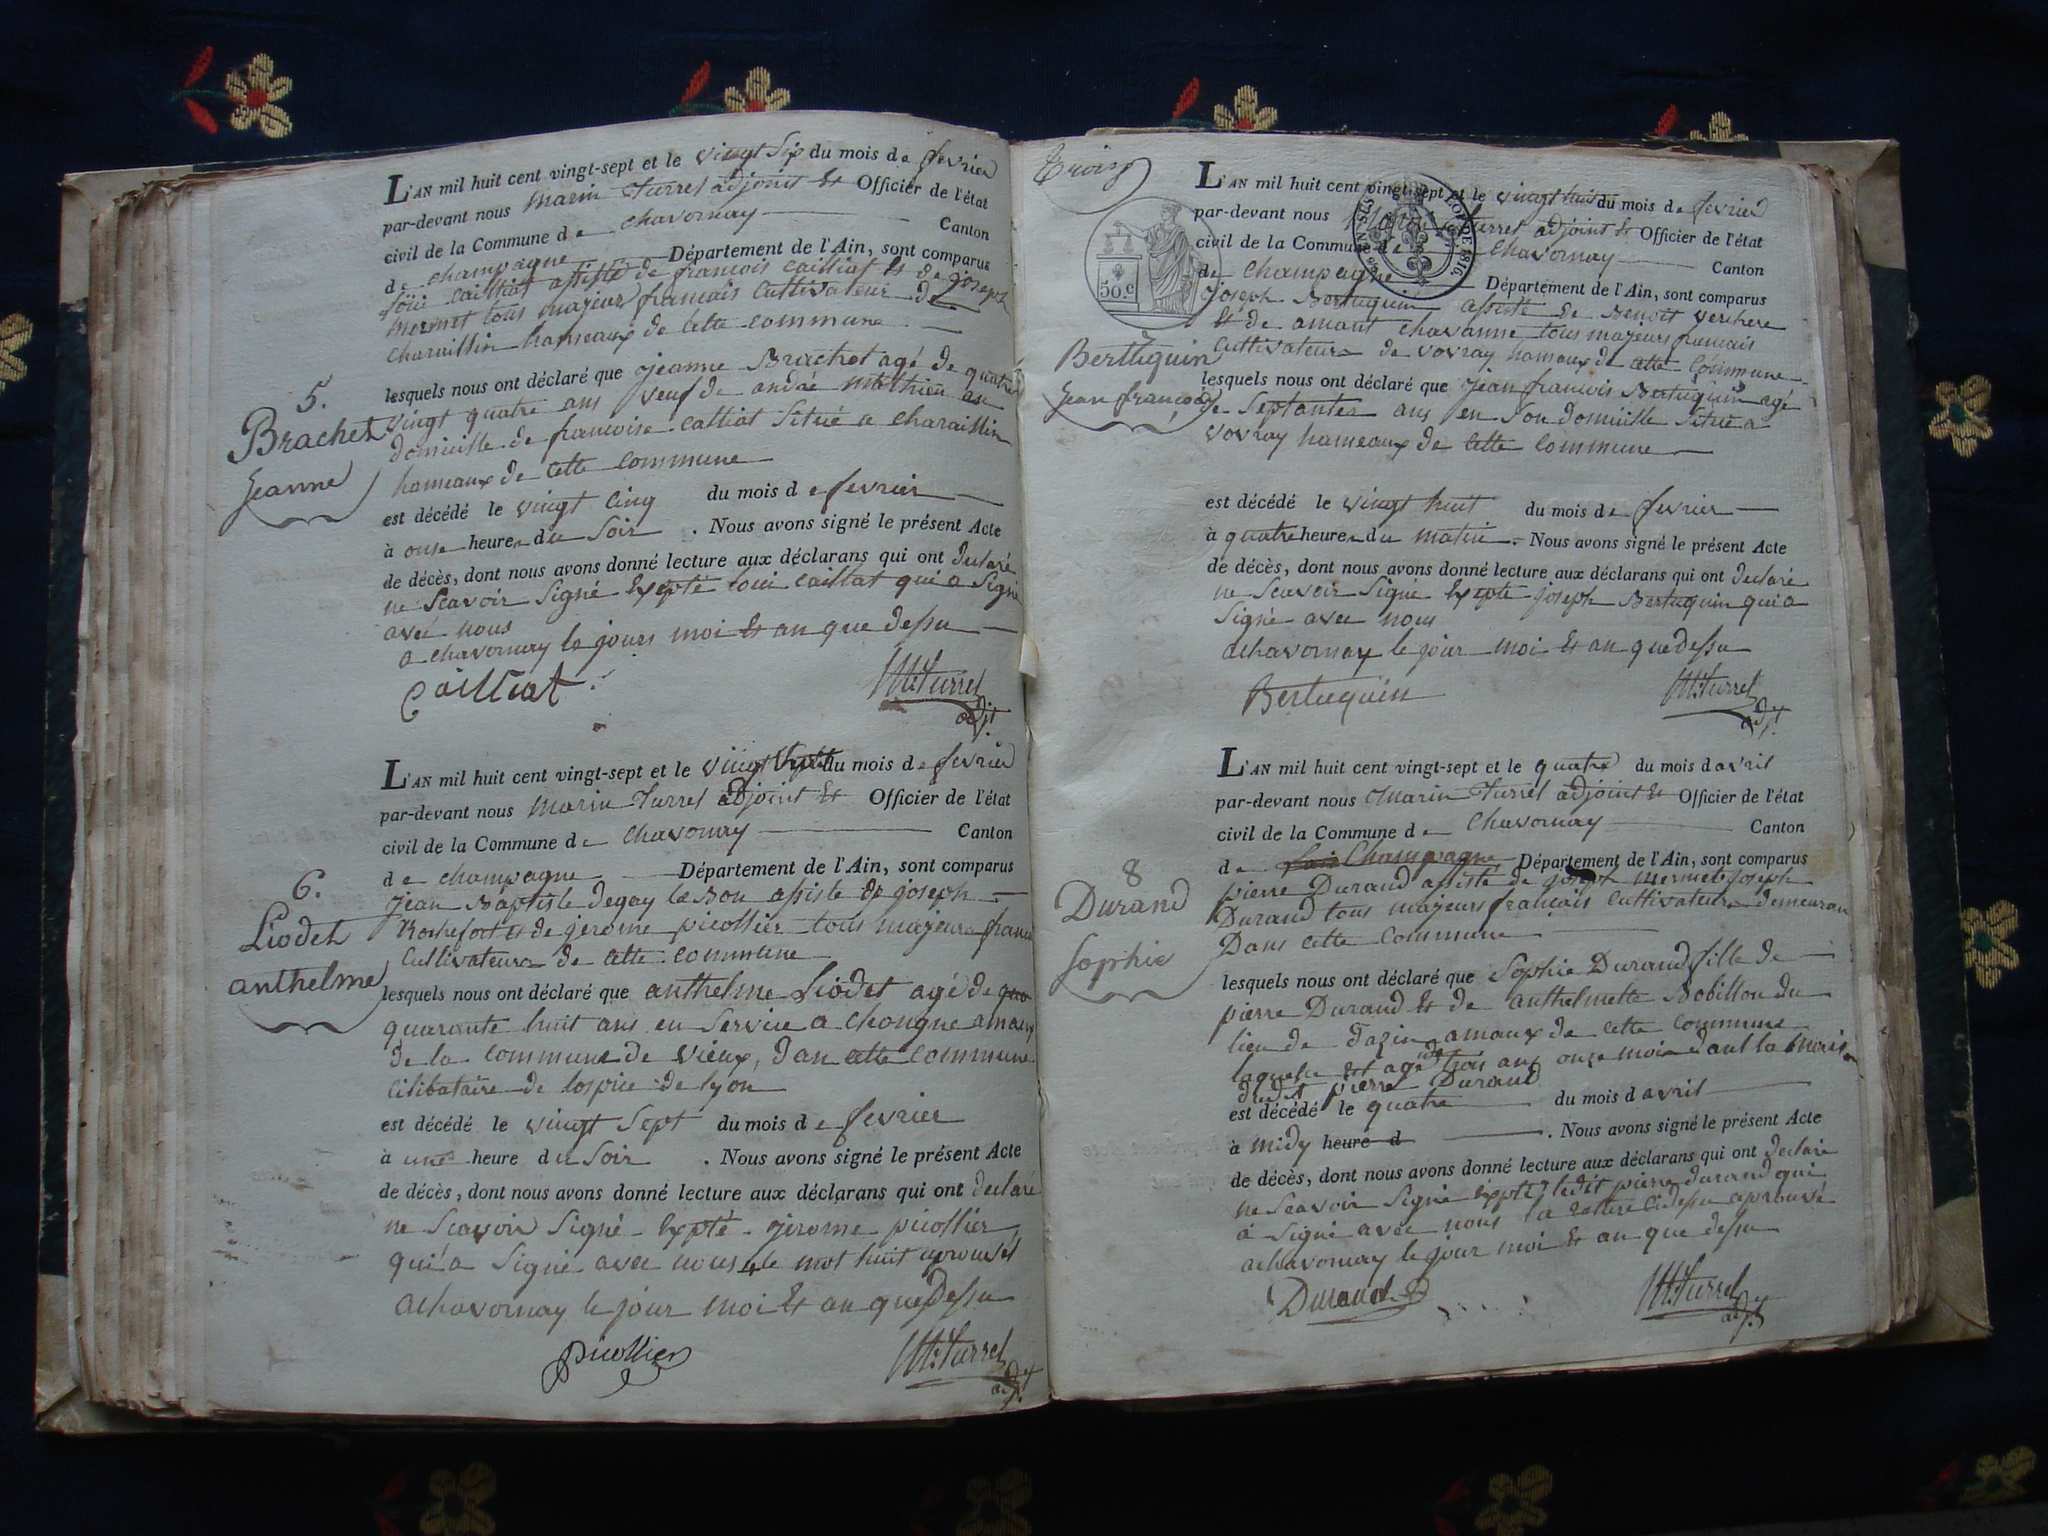 L'AN mil huit cent vingt-sept et le vingt six du mois de fevrier
par-devant nous Marin Turrel adjoint et Officier de l'état
civil de la Commune de chavornay Canton
de champagne Département de l'Ain, sont comparus
loui cailliat assisté de francois cailliat et de joseph
mermet tous majeur francais cultivateur de
charaillin hameaux de cette commune
5.
Brachet
Jeanne
lesquels nous ont déclaré que jeanne Brachet agé de quatre
vingt quatre ans veuf de andré mathieu au
domicille de francoise calliat situé a charaillin
hameaux de cette commune
est décédé le vingt cinq du mois de fevrier
à onse heure du soir . Nous avons signé le présent Acte
de décès, dont nous avons donné lecture aux déclarans qui ont declaré
ne scavoir signé exepté loui caillat qui a signé
avec nous
a chavornay le jours moi et an que dessu
Cailliat
M. Turrel
adj.t
L'AN mil huit cent vingt-sept et le vingt sept du mois de fevrier
par-devant nous marin Turrel adjoint et Officier de l'état
civil de la Commune de chavornay Canton
de champagne Département de l'Ain, sont comparus
6.
Liodet
anthelme
jean Baptiste degay le Bon assiste de joseph
Rochefort et de jerome picollier tous majeurs francai
cultivateur de cette commune
lesquels nous ont déclaré que anthelme Liodet agé de qua
quarante huit ans en service a chongne amaux
de la commune de vieux, dan cette commune
cilibataire de lospice de lyon
est décédé le vingt sept du mois de fevrier
à une heure du soir . Nous avons signé le présent Acte
de décès, dont nous avons donné lecture aux déclarans qui ont declaré
ne scavoir signé exepté jerome picollier
qui a signé avec nous le mot huit aprouvés
achavornay le jour moi et an que dessu
picollier
M. Turrel
adj.t
Trois
L'AN mil huit cent vingt-sept et le vingt huit du mois de fevrier
par-devant nous Marin Turrel adjoint et Officier de l'état
civil de la Commune de chavornay Canton
de champagne Département de l'Ain, sont comparus
50.c
LOI DE 1816
joseph Bertuquin assisté de Benoit verchere
et de amant chavanne tous majeurs francais
cultivateur de vovray hameaux de cette commune
7
Bertuquin
Jean françois
lesquels nous ont déclaré que jean francois Bertuquin agé
de septantes ans en son domicille situé a
vovray hameaux de cette commune
est décédé le vingt huit du mois de fevrier
à quatre heure du matin . Nous avons signé le présent Acte
de décès, dont nous avons donné lecture aux déclarans qui ont declaré
ne scavoir signé exepté joseph Bertuquin qui a
signé avec nous
achavornay le jour moi et an que dessu
Bertuquin
M. Turrel
adj.t
L'AN mil huit cent vingt-sept et le quatre du mois d avril
par-devant nous Marin Turrel adjoint et Officier de l'état
civil de la Commune de Chavornay Canton
de Champagne Département de l'Ain, sont comparus
8
Durand
Sophie
pierre Durand assisté de joseph mermet joseph
Durand tous majeurs francais cultivateur demeuran
Dans cette commune
lesquels nous ont déclaré que Sophie Durand fille de
pierre Durand et de anthelmette Bobillon du
lieu de Fazin amaux de cette commune
laquelle est agé de trois ans onse mois dant la maison
dudit pierre Durand
est décédé le quatre du mois d avril
à midy heure d . Nous avons signé le présent Acte
de décès, dont nous avons donné lecture aux déclarans qui ont declaré
ne scavoir signé exepté ledit pierre durand qui
a signé avec nous la rature cidessu aprouvé
achavornay le jour moi et an que dessu
Durand
M. Turrel
adj.t